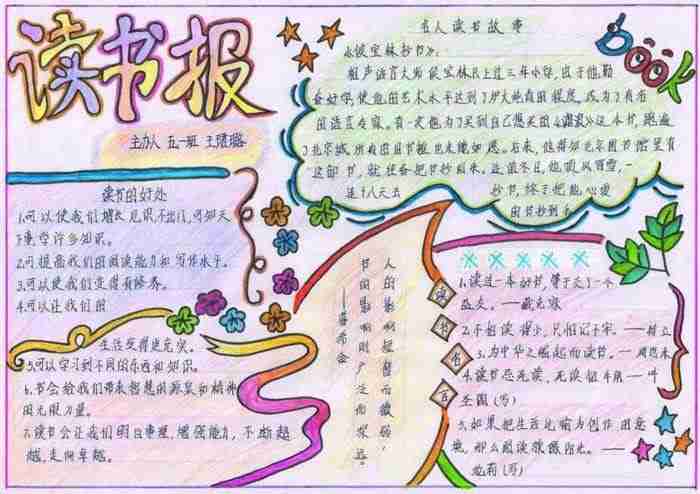 读书报
主办人 五一班 王璐璐
名人读书故事
《侯宝林抄书》:
相声语言大师侯宝林只上过三年小学,由于他勤
奋好学,使他的艺术水平达到了炉火纯青的程度,成为了有名
的语言专家。有一次,他为了买到自己想买的《谑浪》这本书,跑遍
了北京城所有的旧书摊也未能如愿。后来,他得知北京图书馆里有
这部书,就决心把书抄回来。适值冬日,他顶风冒雪,一
连十八天去 抄书,终于把他心爱
的书抄到手
BOOK
读书的好处
1.可以使我们增长见识,不出门,可知天
下事,学许多知识。
2.可提高我们的阅读能力和写作水平。
3.可以使我们变得有修养。
4.可以让我们的
生活变得更充实。
5.可以学习到不同的东西和知识。
6.书会给我们带来智慧的源泉和精神
的无限力量。
7.读书会让我们明白事理,增强能力,不断超
越,走向卓越。
人的影响短暂而微弱,
书的影响则广泛而深远。
——普希金
读书名言
1.读过一本好书,像交了一个
益友。——臧克家
2.不怕读得少,只怕记不牢。——
3.为中华之崛起而读书。——周恩来
4.读书忌死读,死读钻牛角——叶
圣陶(写)
5.如果把生活比喻为创作的意
境,那么阅读就像阳光。——
池莉(写)